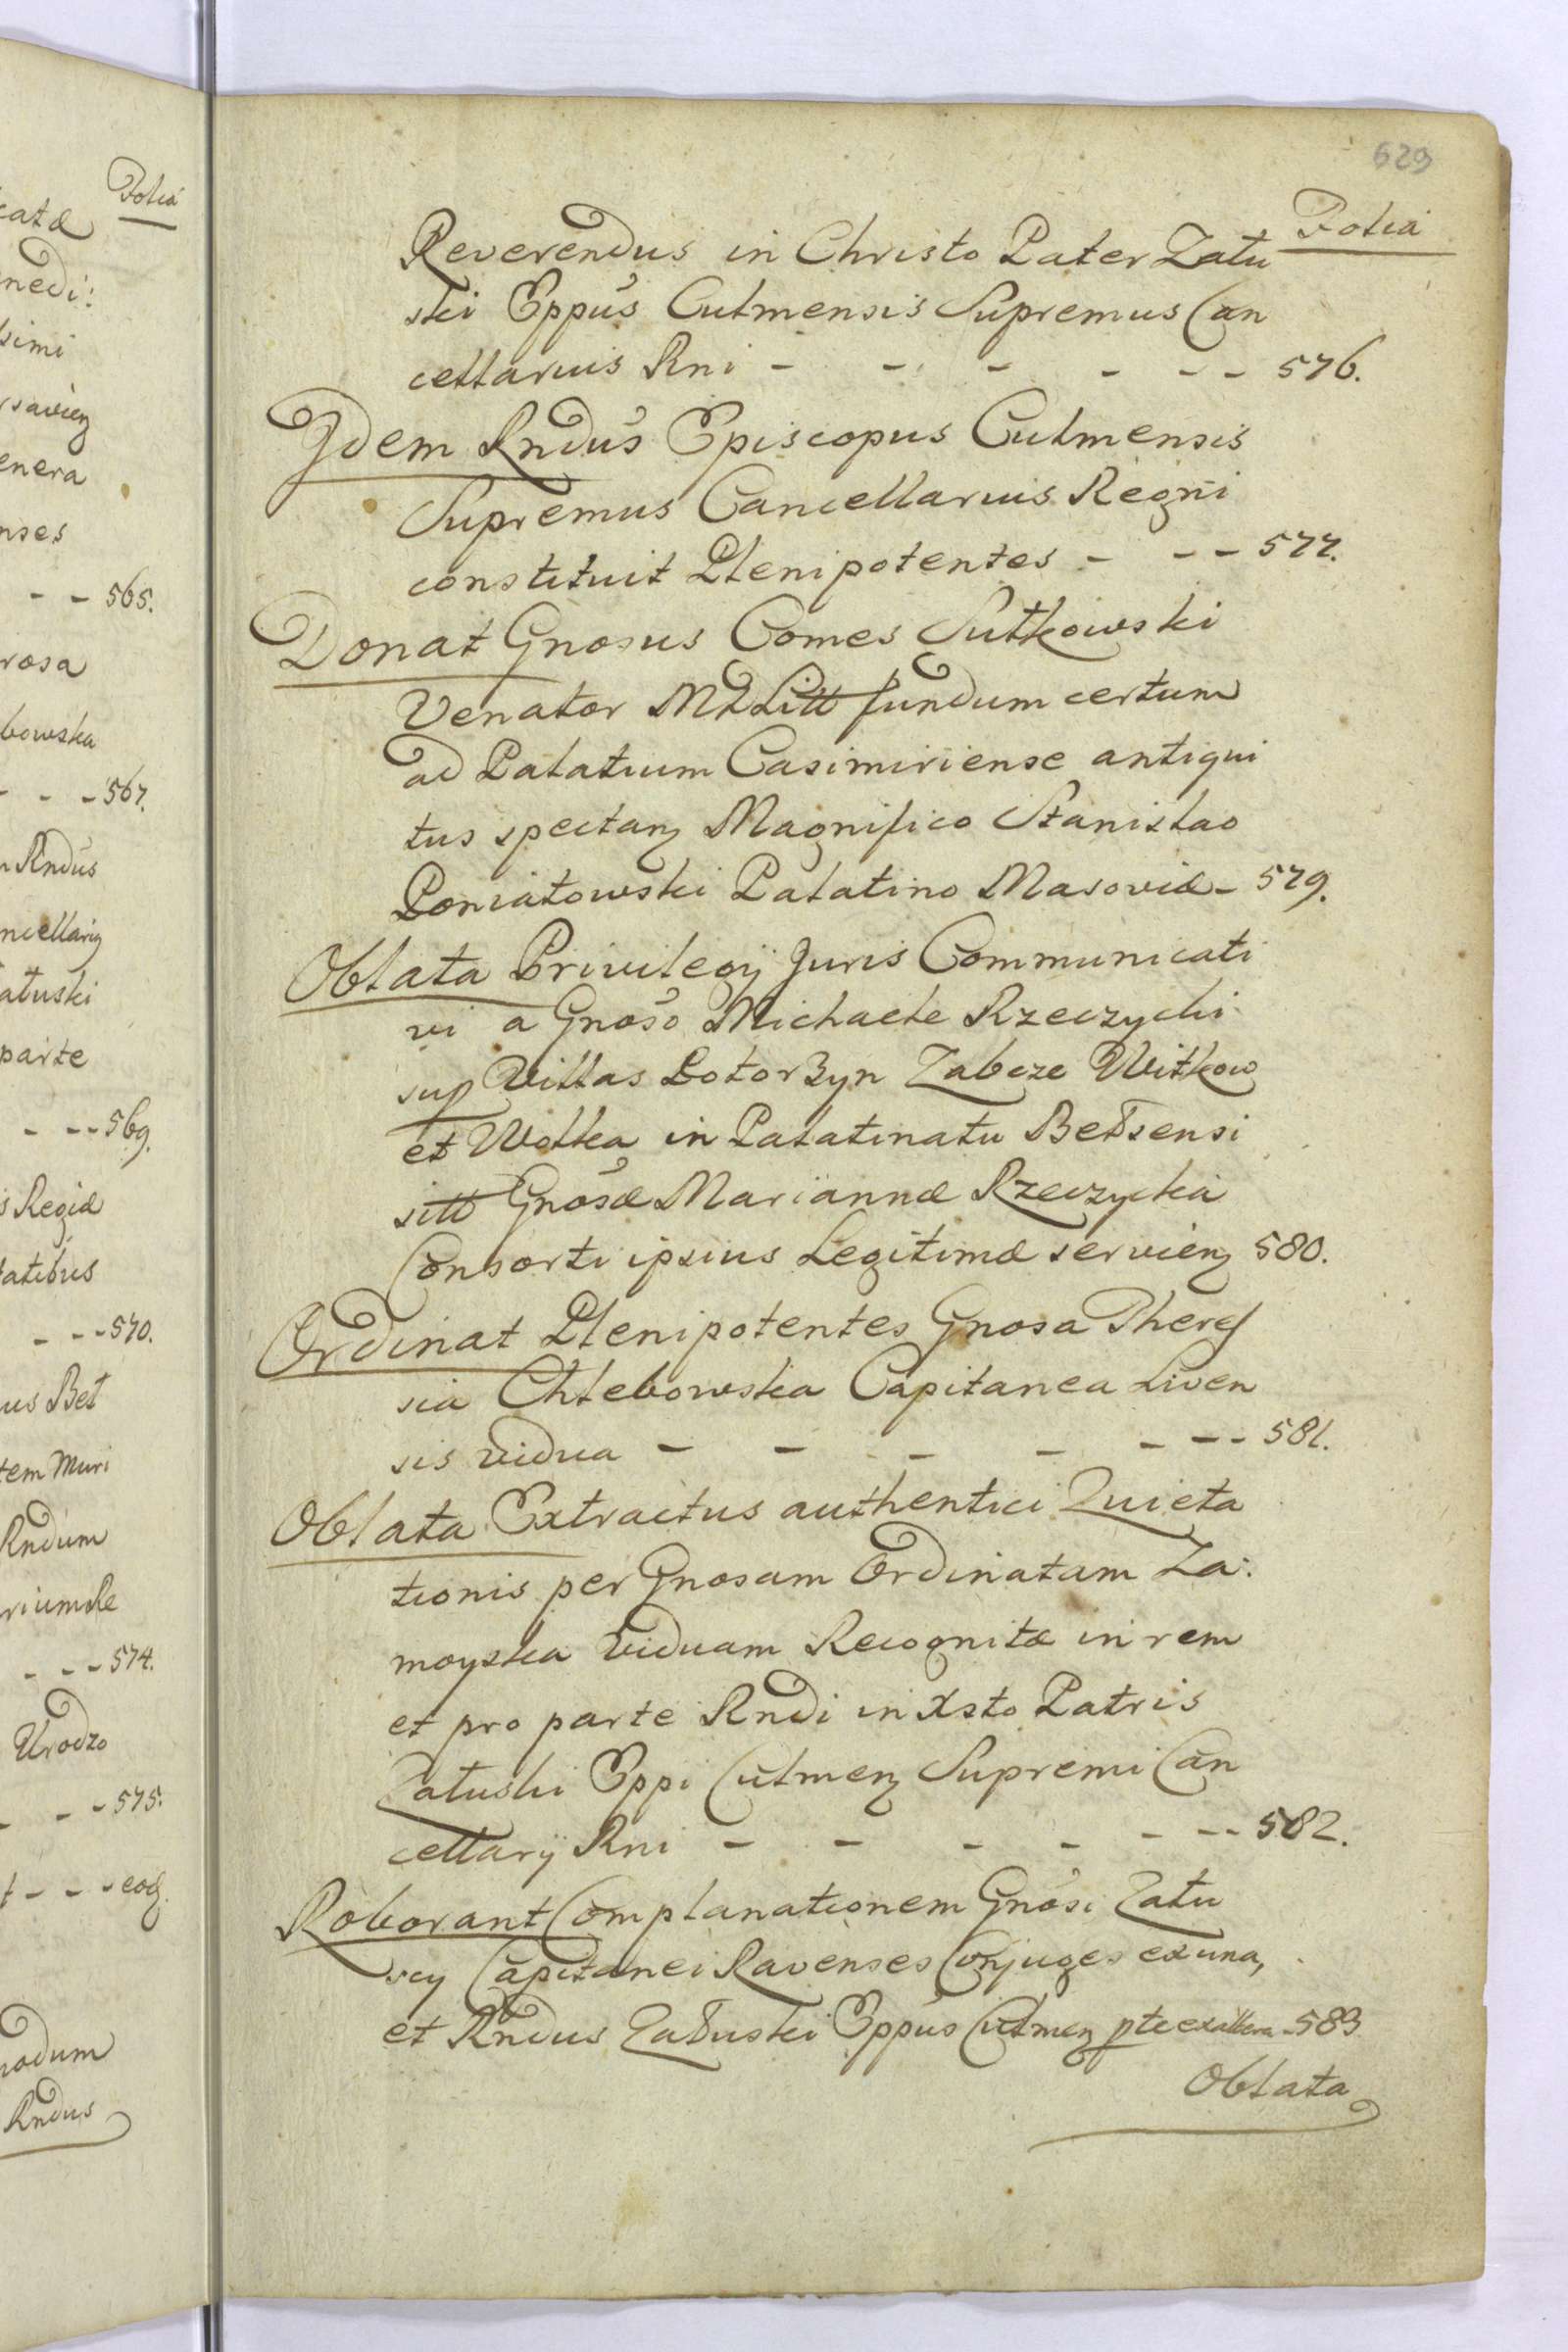 catæ
Folia
nedi:
simi
enera
nses
- - 565.
rosa
bowska
- - - 567.
Rndus
atuski
parte
- - - 569.
Regiæ
tatibus
- - - 570.
us Bet
tem Muri
Rndum
- - - 574.
Urodzo
- - - 575.
Rndus
629
Folia
Reverendus in Christo Pater Zału
ski Eppus Culmensis Supremus Can
cellarius Rni - - - - - - 576.
Jdem Rndus Episcopus Culmensis
Supremus Cancellarius Regni
constituit Plenipotentes - - - 577.
Donat Gnosus Comes Sułkowski
Venator MDLitt fundum certum
ad Palatium Casimiriense antiqui
tus spectanz Magnifico Stanislao
Poniatowski Palatino Masoviæ - 579.
Oblata Privilegij Juris Communicati
vi a Gnoso Michaele Rzeczycki
sup Villas Łotorzyn Zabcze Witkow
et Wolka in Palatinatu Bełsensi
sitt Gnosæ Mariannæ Rzeczycka
Consorti ipsius Legitimæ servienz 580.
Ordinat Plenipotentes Gnosa There
sia Chlebowska Capitanea Liven
sis vidua - - - - - - - 581.
Oblata Extractus authentici Quieta
tionis per Gnosam Ordinatam Za:
moyska Viduam Recognitæ in rem
et pro parte Rndi in Xsto Patris
Załuski Eppi Culmenz Supremi Can
cellarij Rni - - - - - - - 582.
Roborant Complanationem Gnosi Zału
scy Capitanei Ravenses Conjuges ex una,
et Rndus Załuski Eppus Culmenz pte ex altera - 583
Oblata